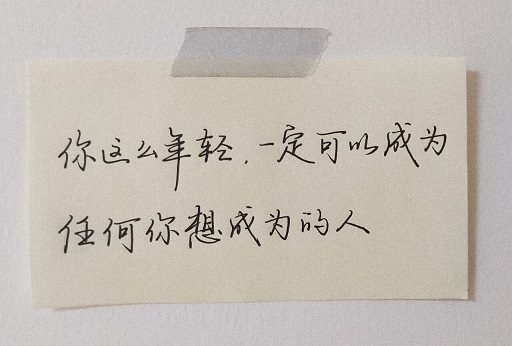 你这么年轻,一定可以成为
任何你想成为的人